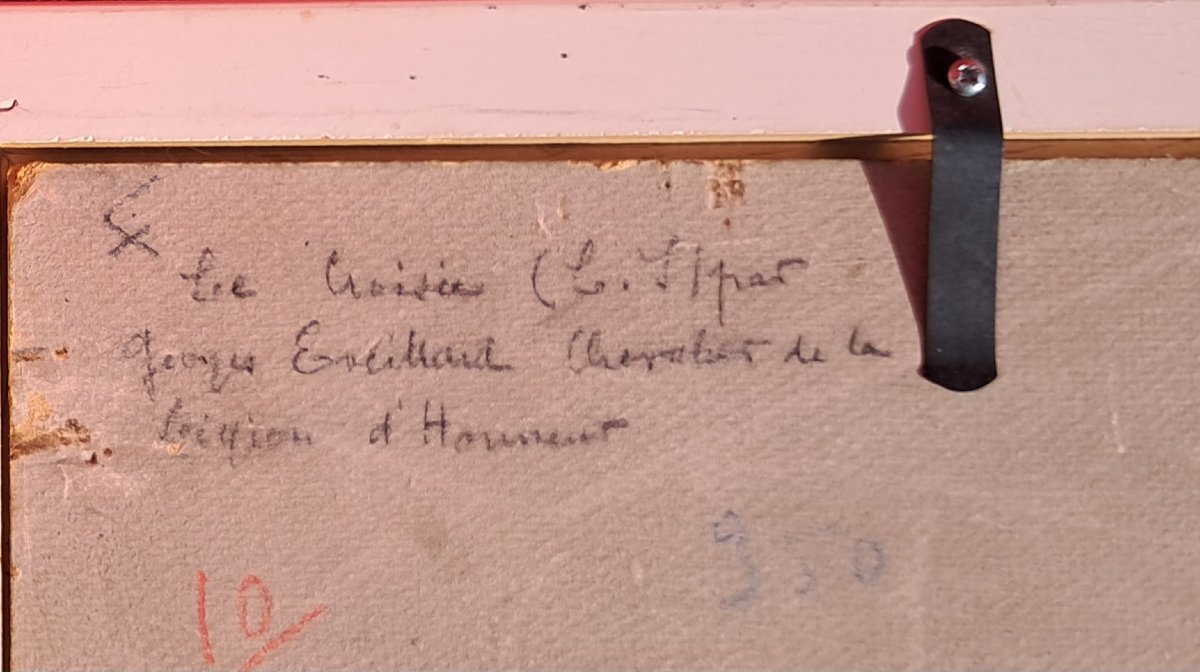 Le Croisic (L. I) par
Georges Eveillard Chevalier de la
Légion d'Honneur
350
10